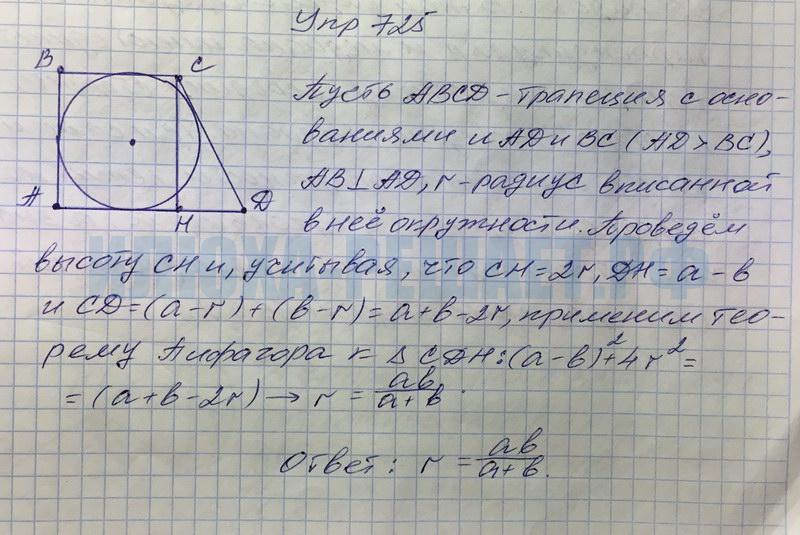 Упр 725
B
C
A
H
D
Пусть ABCD - трапеция с осно-
ваниями и AD и BC (AD > BC),
AB⊥AD, r - радиус вписанной
в неё окружности. Проведём
высоту CH и, учитывая, что CH = 2r, DH = a - b
и CD = (a - r) + (b - r) = a + b - 2r, применим тео-
рему Пифагора к △CDH: (a - b)² + 4r² =
= (a + b - 2r) → r = ab/a+b.
Ответ: r = ab/a+b.
ИЛЮХА-РЕШАЕТ.РФ